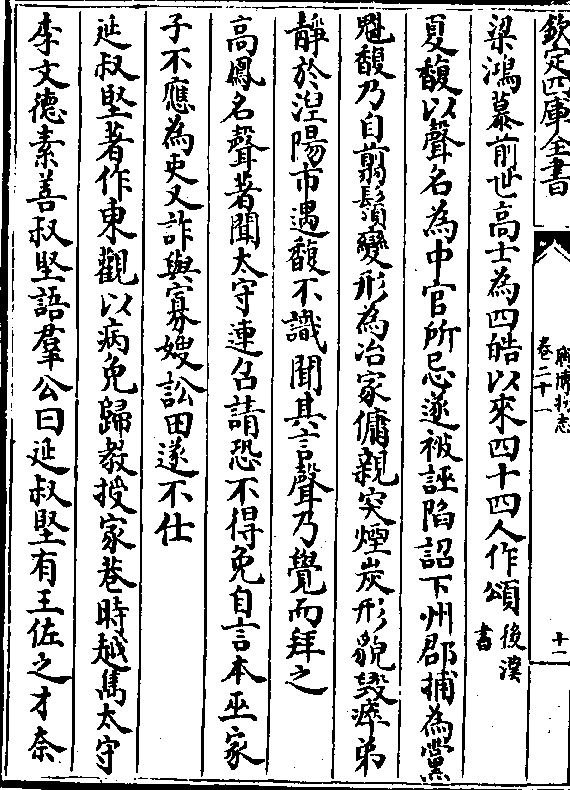 欽定四庫全書
廣博物志
卷二十一
十一
梁鴻慕前世高士為四皓以來四十四人作頌後漢書
夏馥以聲名為中官所忌遂被誣陷詔下州郡捕為黨
魁馥乃自翦鬚變形為冶家傭親突煙炭形貌毀瘁弟
靜於涅陽市遇馥不識聞其言聲乃覺而拜之
高鳳名聲著聞太守連召請恐不得免自言本巫家
子不應為吏又詐與寡嫂訟田遂不仕
延叔堅著作東觀以病免歸教授家巷時越嶲太守
李文德素善叔堅語羣公曰延叔堅有王佐之才奈